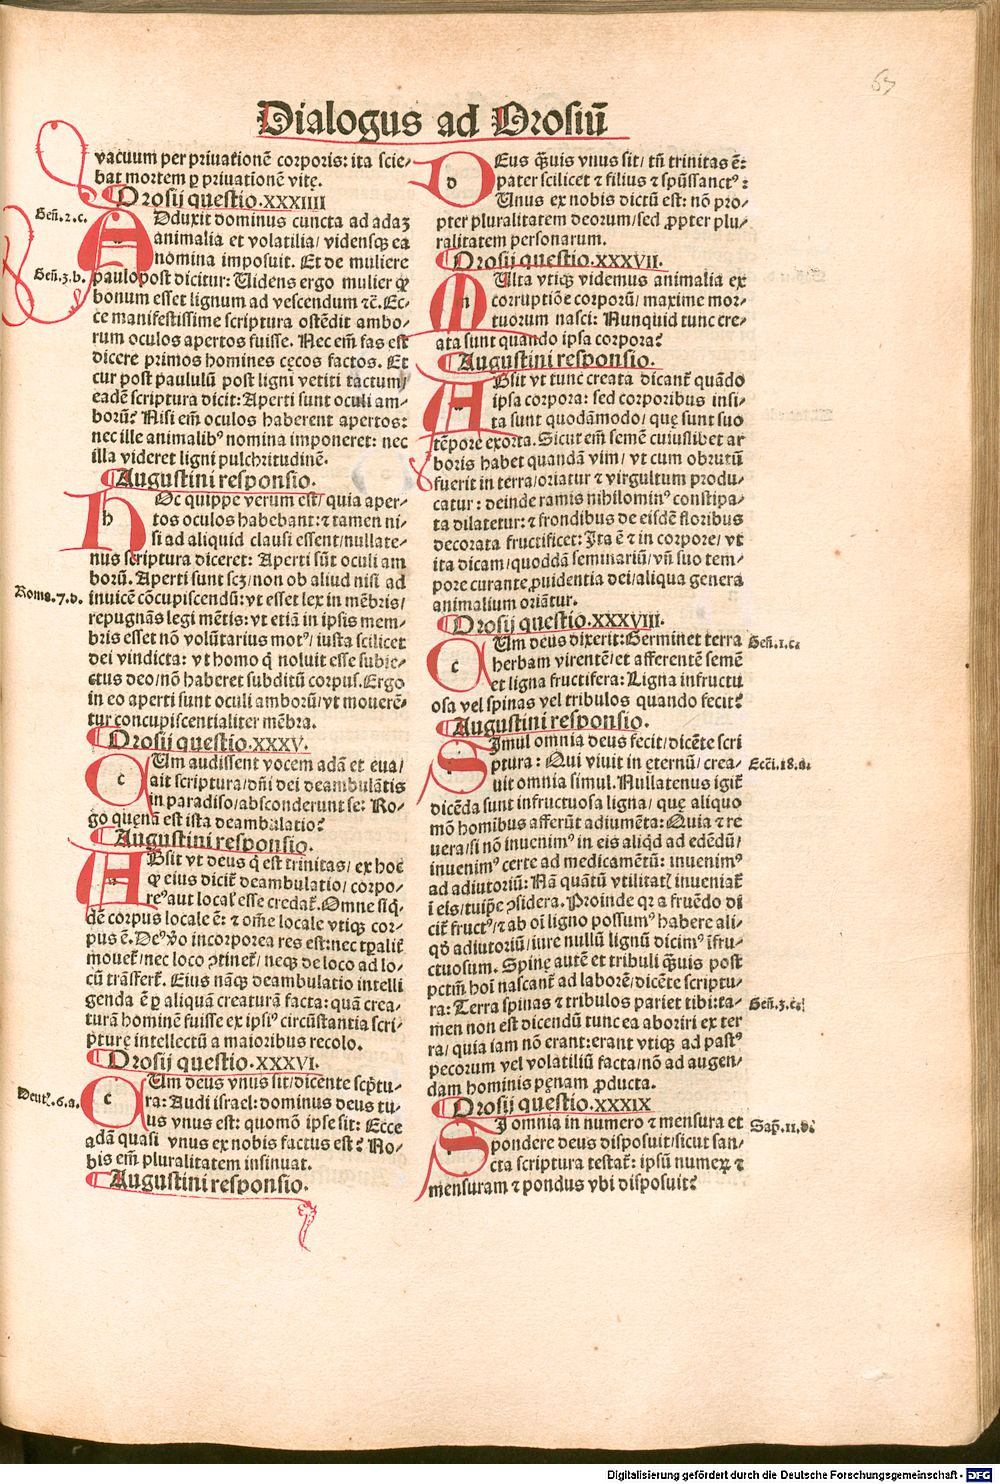 67
Dialogus ad Orosiū
vacuum per priuationē corporis: ita scie⸗
bat mortem ꝑ priuationē vitę.
Orosij questio.XXXIIII
Adduxit dominus cuncta ad adaʒ
Geñ.2.c.
animalia et volatilia/ vidensqꝫ ea
nomina imposuit. Et de muliere
Geñ.3.b.
paulopost dicitur: Uidens ergo mulier ꝙ
bonum esset lignum ad vescendum ⁊c̄. Ec⸗
ce manifestissime scriptura ostēdit ambo⸗
rum oculos apertos fuisse. Nec em̄ fas est
dicere primos homines cęcos factos. Et
cur post paululū post ligni vetiti tactum/
eadē scriptura dicit: Aperti sunt oculi am⸗
borū? Nisi em̄ oculos haberent apertos:
nec ille animalibꝰ nomina imponeret: nec
illa videret ligni pulchritudinē.
Augustini responsio.
Hoc quippe verum est/ quia aper⸗
tos oculos habebant: ⁊ tamen ni⸗
si ad aliquid clausi essent/nullate⸗
nus scriptura diceret: Aperti sūt oculi am
borū. Aperti sunt scʒ/ non ob aliud nisi ad
Roma.7.d.
inuicē cōcupiscendū: vt esset lex in mēbris/
repugnās legi mētis: vt etiā in ipsis mem⸗
bris esset nō volūtarius motꝰ/ iusta scilicet
dei vindicta: vt homo q̇ noluit esse subie⸗
ctus deo/ nō haberet subditū corpus. Ergo
in eo aperti sunt oculi amborū/ vt mouerē⸗
tur concupiscentialiter mēbra.
Orosij questio.XXXV.
Cum audissent vocem adā et eua/
ait scriptura/ dn̄i dei deambulātis
in paradiso/ absconderunt se: Ro⸗
go quęnā est ista deambulatio?
Augustini responsio.
Absit vt deus q̇ est trinitas/ ex hoc
ꝙ eius dicit̄ deambulatio/ corpo⸗
reꝰ aut localꝭ esse credat̄. Omne siq̇⸗
dē corpus locale ē: ⁊ om̄e locale vtiqꝫ cor⸗
pus ē. Deꝰ v̊o incorporea res est: nec tꝑalit̄
mouet̄/ nec loco ↄtinet̄/ neqꝫ de loco ad lo⸗
cū trāsfert̄. Eius nāqꝫ deambulatio intelli
genda ē ꝑ aliquā creaturā facta: quā crea⸗
turā hominē fuisse ex ipsiꝰ circūstantia scri⸗
pturę intellectū a maioribus recolo.
Orosij questio.XXXVI.
Cum deus vnus sit/ dicente scp̄tu⸗
Deutꝭ.6.a.
ra: Audi israel: dominus deus tu⸗
us vnus est: quomō ipse sit: Ecce
adā quasi vnus ex nobis factus est? No⸗
bis em̄ pluralitatem insinuat.
Augustini responsio.
Deus q̄uis vnus sit/ tn̄ trinitas ē:
pater scilicet ⁊ filius ⁊ spūssanctꝰ:
Unus ex nobis dictū est: nō pro⸗
pter pluralitatem deorum/ sed ꝓpter plu⸗
ralitatem personarum.
Orosij questio.XXXVII.
Multa vtiqꝫ videmus animalia ex
corruptiōe corporū/ maxime mor⸗
tuorum nasci: Nunquid tunc cre⸗
ata sunt quando ipsa corpora?
Augustini responsio.
Absit vt tunc creata dicant̄ quādo
ipsa corpora: sed corporibus insi⸗
ta sunt quodāmodo/ quę sunt suo
tēpore exorta. Sicut em̄ semē cuiuslibet ar
boris habet quandā vim/ vt cum obrutū
fuerit in terra/ oriatur ⁊ virgultum produ⸗
catur: deinde ramis nihilominꝰ constipa⸗
ta dilatetur: ⁊ frondibus de eisdē floribus
decorata fructificet: Ita ē ⁊ in corpore/ vt
ita dicam/ quoddā seminariū/ vn̄ suo tem⸗
pore curante ꝓuidentia dei/ aliqua genera
animalium oriātur.
Orosij questio.XXXVIII.
Cum deus dixerit: Germinet terra
Geñ.1.c.
herbam virentē/ et afferentē semē
et ligna fructifera: Ligna infructu
osa vel spinas vel tribulos quando fecit?
Augustini responsio.
Simul omnia deus fecit/ dicēte scri
ptura: Qui viuit in ęternū/ crea⸗
Ecci.18.a.
uit omnia simul. Nullatenus igit̄
dicēda sunt infructuosa ligna/ quę aliquo
mō homībus afferūt adiumēta: Quia ⁊ re
uera/ si nō inuenimꝰ in eis aliq̇d ad edēdū/
inuenimꝰ certe ad medicamētū: inuenimꝰ
ad adiutoriū: Nā quātū vtilitatꝭ inueniat̄
ī eis/ tuip̄e ↄsidera. Proinde qꝛ a fruēdo di
cit̄ fructꝰ/ ⁊ ab oī ligno possumꝰ habere ali⸗
qḋ adiutoriū/ iure nullū lignū dicimꝰ īfru⸗
ctuosum. Spinę autē et tribuli q̄uis post
pctm̄ hoī nascant̄ ad laborē/ dicēte scriptu⸗
ra: Terra spinas ⁊ tribulos pariet tibi: ta⸗
Geñ.3.c.
men non est dicendū tunc ea aboriri ex ter
ra/ quia iam nō erant: erant vtiqꝫ ad pastꝰ
pecorum vel volatiliū facta/ nō ad augen⸗
dam hominis pęnam ꝓducta.
Orosij questio.XXXIX
Si omnia in numero ⁊ mensura et
Sap̄.11.d.
pondere deus disposuit/ sicut san⸗
cta scriptura testat̄: ipsū numeꝝ ⁊
mensuram ⁊ pondus vbi disposuit?
Digitalisierung gefördert durch die Deutsche Forschungsgemeinschaft - DFG